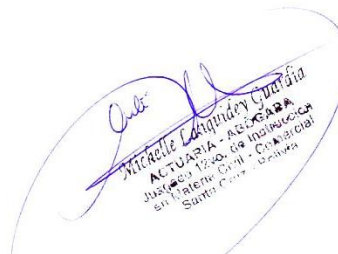 Michelle Guardia
ACTUARIA - ABOGADA
Juzgado 12vo. de Instrucción
en Materia Civil - Comercial
Santa Cruz - Bolivia